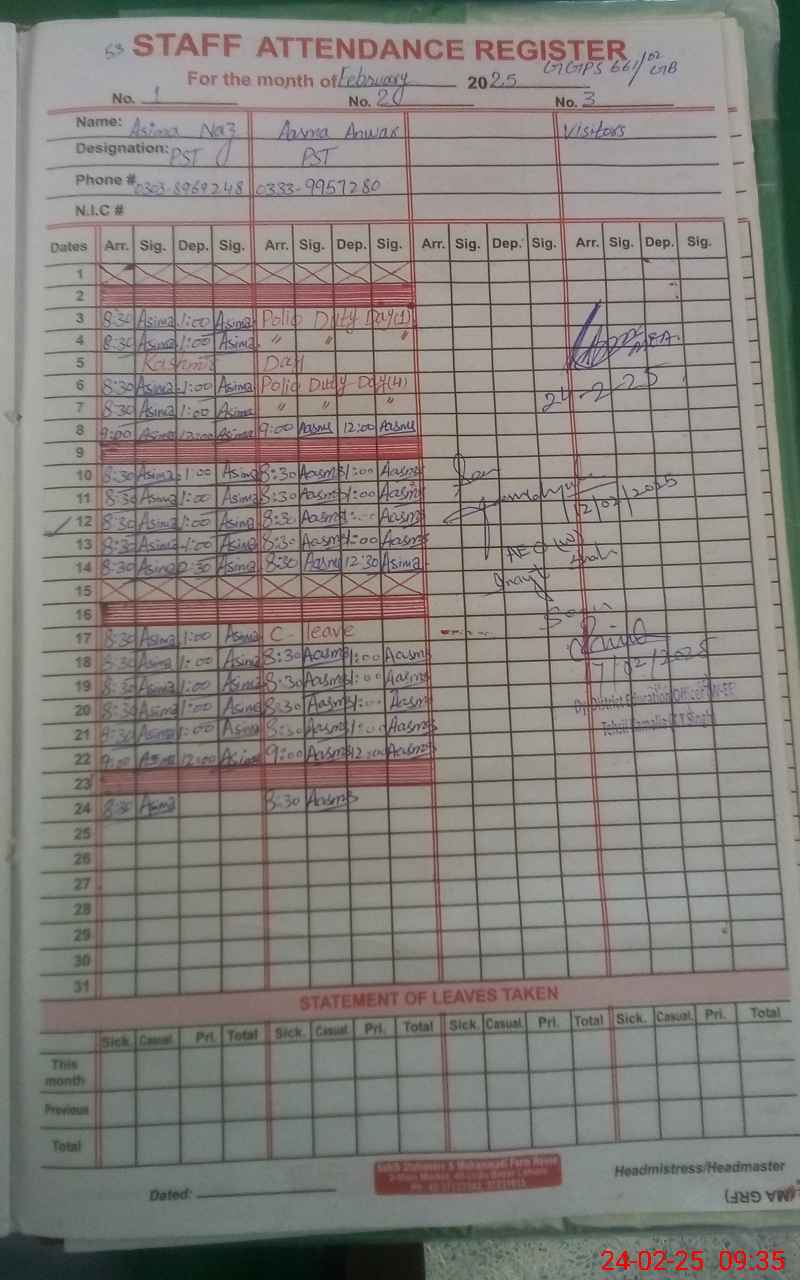 53 STAFF ATTENDANCE REGISTER
GGPS 661/62 GB
For the month of February 2025
No. 1 No. 2 No. 3
Name: Asima Naz Aasma Anwar Visitors
Designation: PST PST
Phone # 0303-8969248 0333-9957280
N.I.C #
Dates Arr. Sig. Dep. Sig. Arr. Sig. Dep. Sig. Arr. Sig. Dep. Sig. Arr. Sig. Dep. Sig.
1
2
3 8:30 Asima 1:00 Asima Polio Duty Day(1)
4 8:30 Asima 1:00 Asima " " "
5 Kashmir Day
6 8:30 Asima 1:00 Asima Polio Duty Day(4)
24-2-25
7 8:30 Asima 1:00 Asima " " "
8 9:00 Asima 12:00 Asima 9:00 Aasma 12:00 Aasma
9
10 8:30 Asima 1:00 Asima 8:30 Aasma 1:00 Aasma
11 8:30 Asima 1:00 Asima 8:30 Aasma 1:00 Aasma
12/02/2025
12 8:30 Asima 1:00 Asima 8:30 Aasma 1:00 Aasma
13 8:30 Asima 1:00 Asima 8:30 Aasma 1:00 Aasma
AEO (W)
14 8:30 Asima 12:30 Asima 8:30 Aasma 12:30 Asima
15
16
17 8:30 Asima 1:00 Asima C- leave
18 8:30 Asima 1:00 Asima 8:30 Aasma 1:00 Aasma
17/02/2025
19 8:30 Asima 1:00 Asima 8:30 Aasma 1:00 Aasma
20 8:30 Asima 1:00 Asima 8:30 Aasma 1:00 Aasma
Dy. District Education Officer (W-EE)
21 8:30 Asima 1:00 Asima 8:30 Aasma 1:00 Aasma
Tehsil Kamalia T.T Singh
22 9:00 Asima 12:00 Asima 9:00 Aasma 12:00 Aasma
23
24 8:30 Asima 8:30 Aasma
25
26
27
28
29
30
31
STATEMENT OF LEAVES TAKEN
Sick. Casual. Pri. Total Sick. Casual. Pri. Total Sick. Casual. Pri. Total Sick. Casual. Pri. Total
This month
Previous
Total
Dated:
Headmistress/Headmaster
24-02-25 09:35